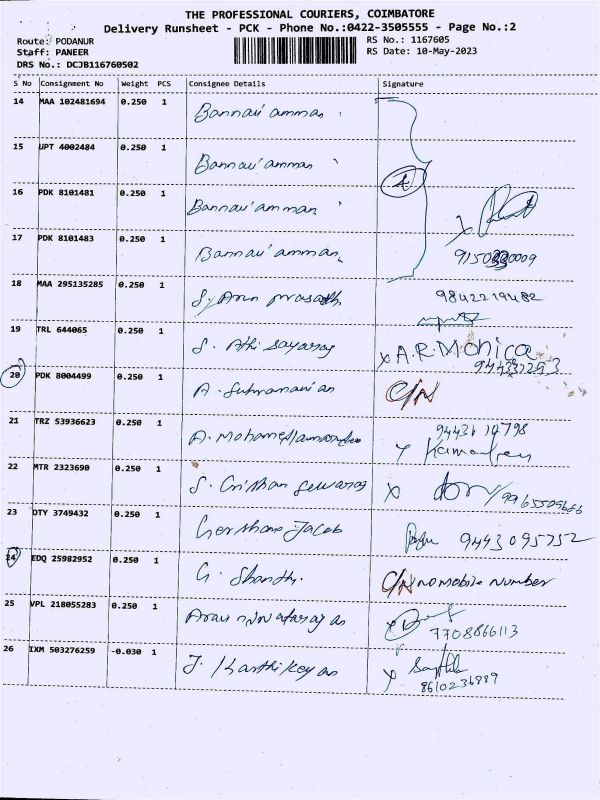 THE PROFESSIONAL COURIERS, COIMBATORE
Delivery Runsheet - PCK - Phone No.:0422-3505555 - Page No.:2
Route: PODANUR
RS No.: 1167605
Staff: PANEER
RS Date: 10-May-2023
DRS No.: DCJB116760502
S No Consignment No Weight PCS Consignee Details Signature
14 MAA 102481694 0.250 1 Bannari amman
15 UPT 4002484 0.250 1 Bannari amman
16 PDK 8101481 0.250 1 Bannari amman
4
17 PDK 8101483 0.250 1 Bannari amman
18 MAA 295135285 0.250 1 S. Arun prasath 9842219482
19 TRL 644065 0.250 1 S. x A.R Monica
20 PDK 8004499 0.250 1 A. C/N
21 TRZ 53936623 0.250 1 A. 9443114798
22 MTR 2323690 0.250 1 S. x 9965509666
23 DTY 3749432 0.250 1 Gershane Jacob 9443095752
24 EDQ 25982952 0.250 1 G. Shanthi C/N no mobile number
25 VPL 218055283 0.250 1 x 7708866113
26 IXM 503276259 -0.030 1 J. Karthikeyan x
8610236889